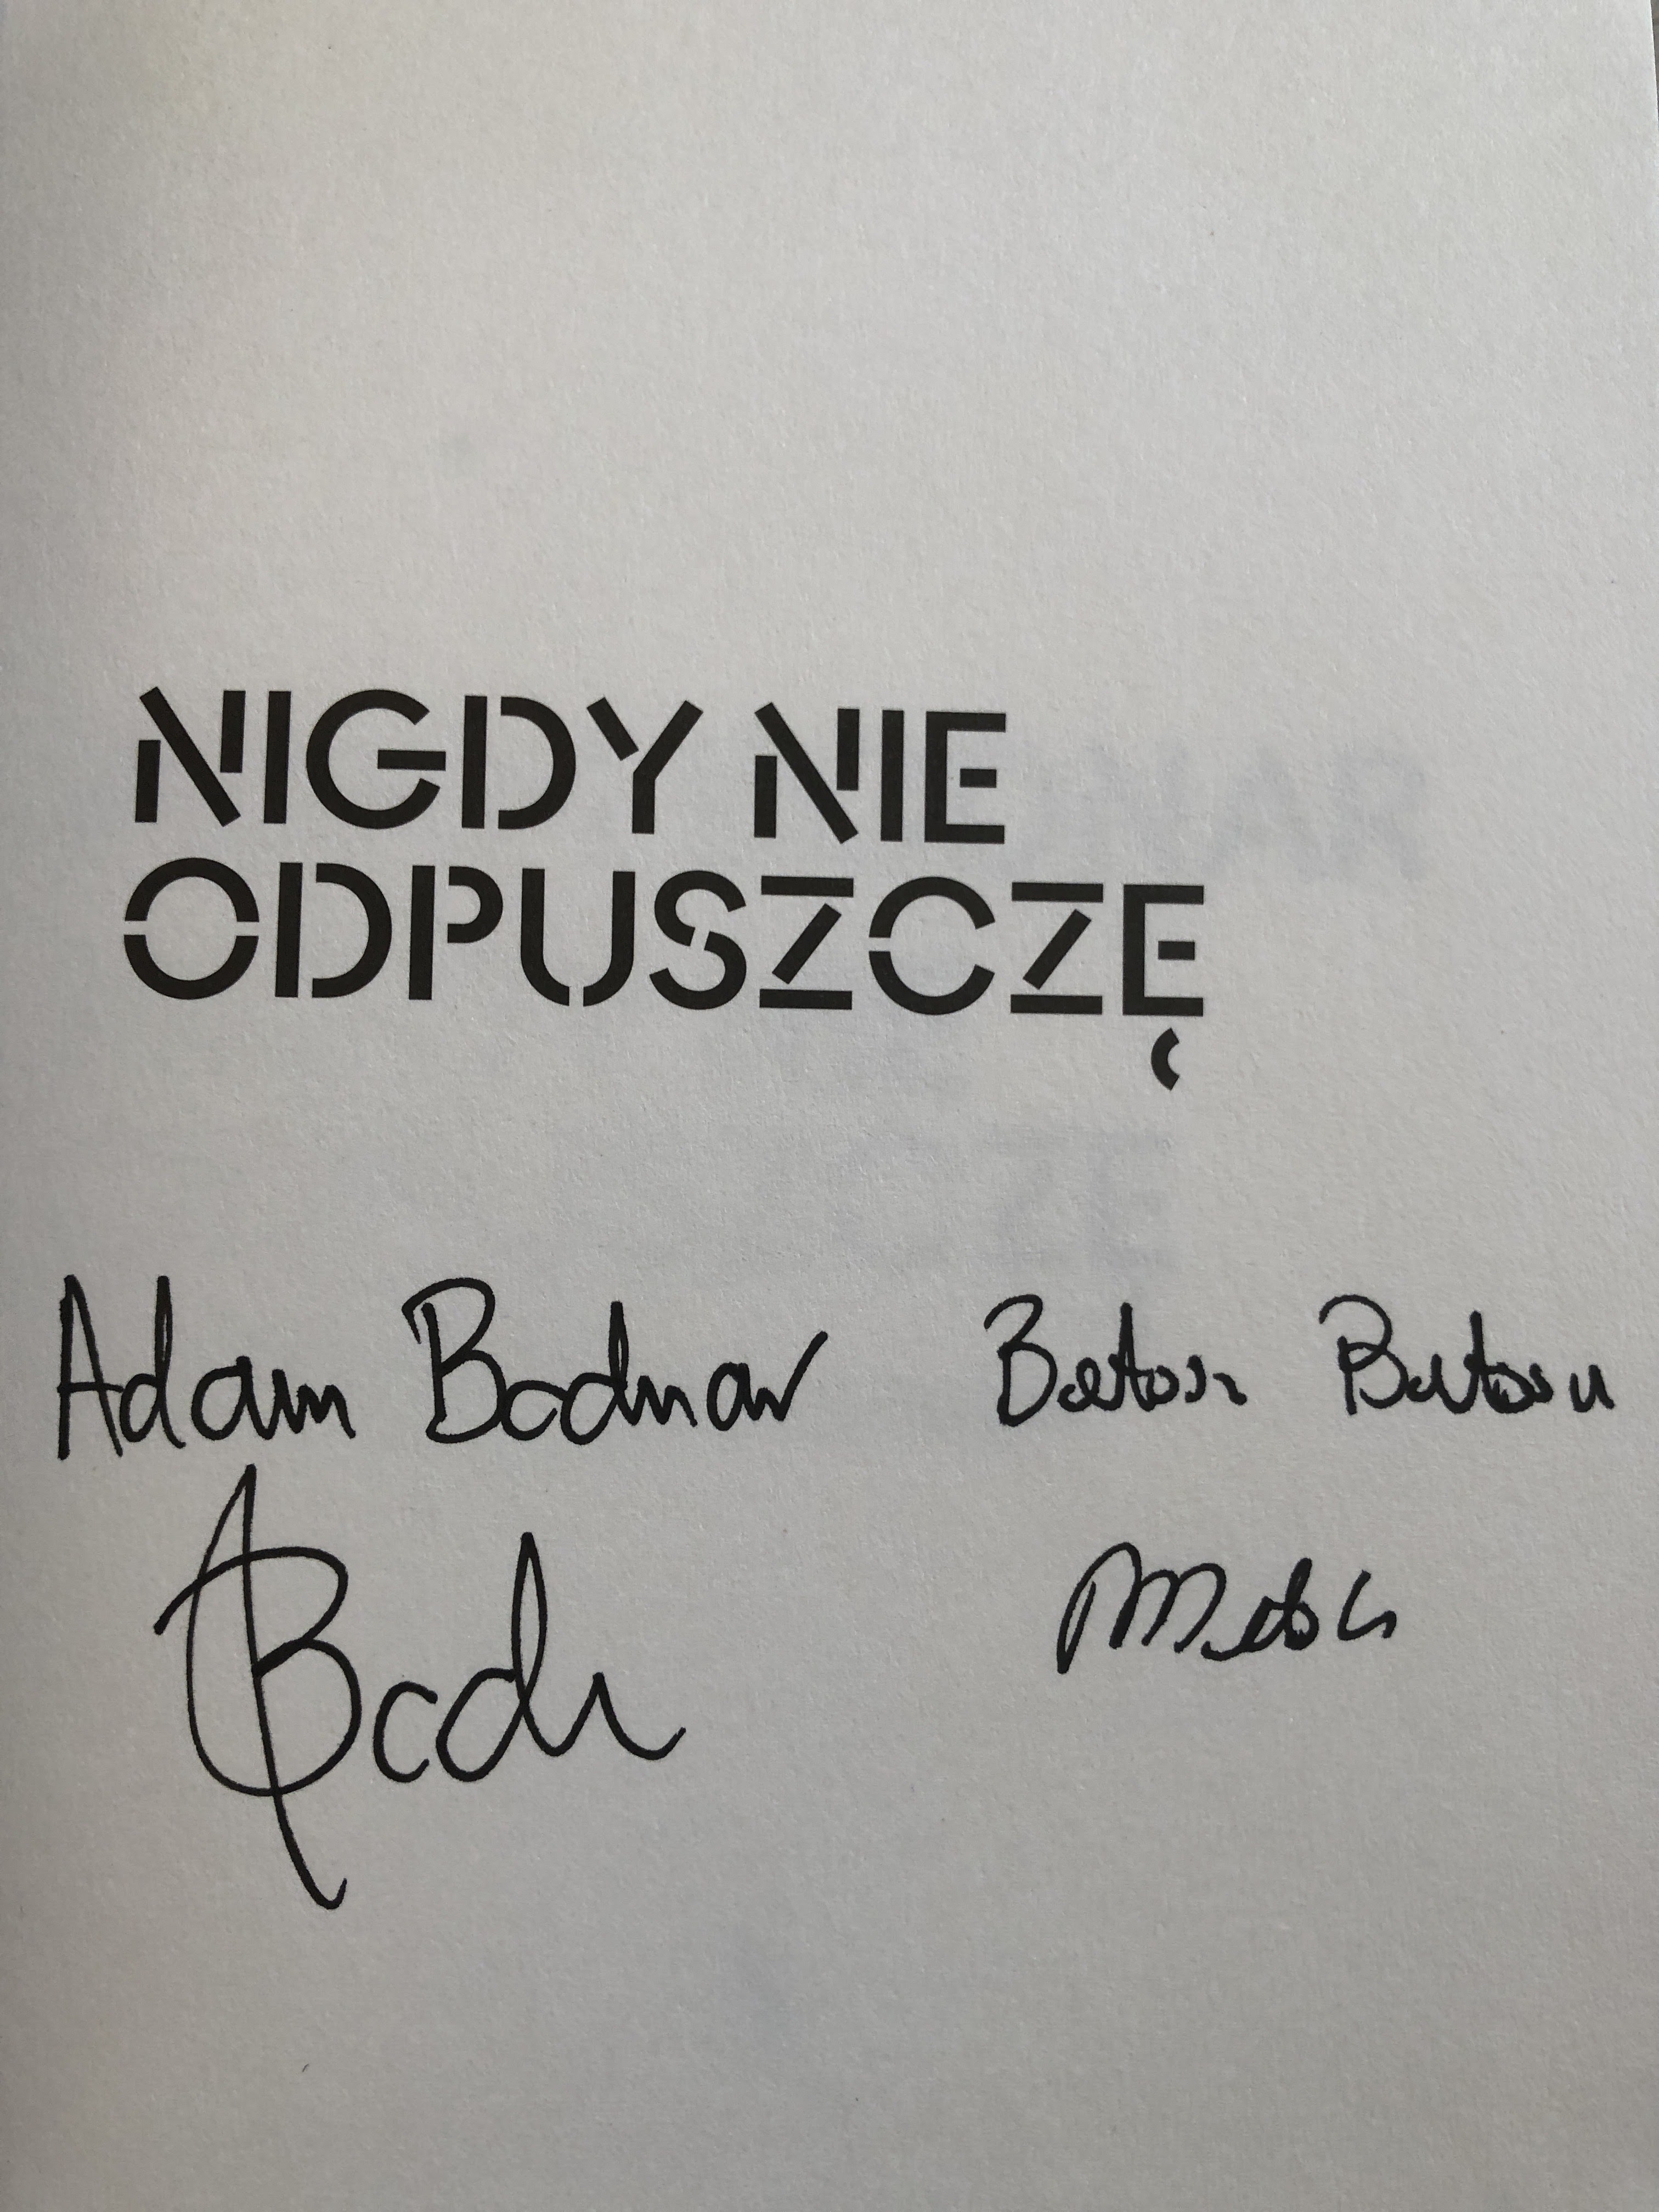 NIGDY NIE
ODPUSZCZĘ
Adam Bodnar Bartosz Bartosik